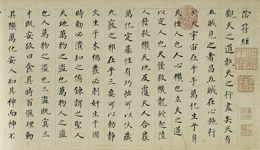 陰符經
觀天之道執天之行盡矣天有
五賊見之者昌五賊在心施行
於天宇宙在乎手萬化生乎身
天性人也人心機也立天之道
以定人也天發殺機龍蛇起陸
人發殺機天地反覆天人合發
萬化定基性有巧拙可以伏藏
九竅之邪在乎三要可以動靜
火生於木禍發必剋姦生於國
時動必潰知之修鍊謂之聖人
天地萬物之盜萬物人之盜
也人萬物之盜也三盜既宜三
才既安故曰食其時百骸理動
其機萬化安人知其神而神不